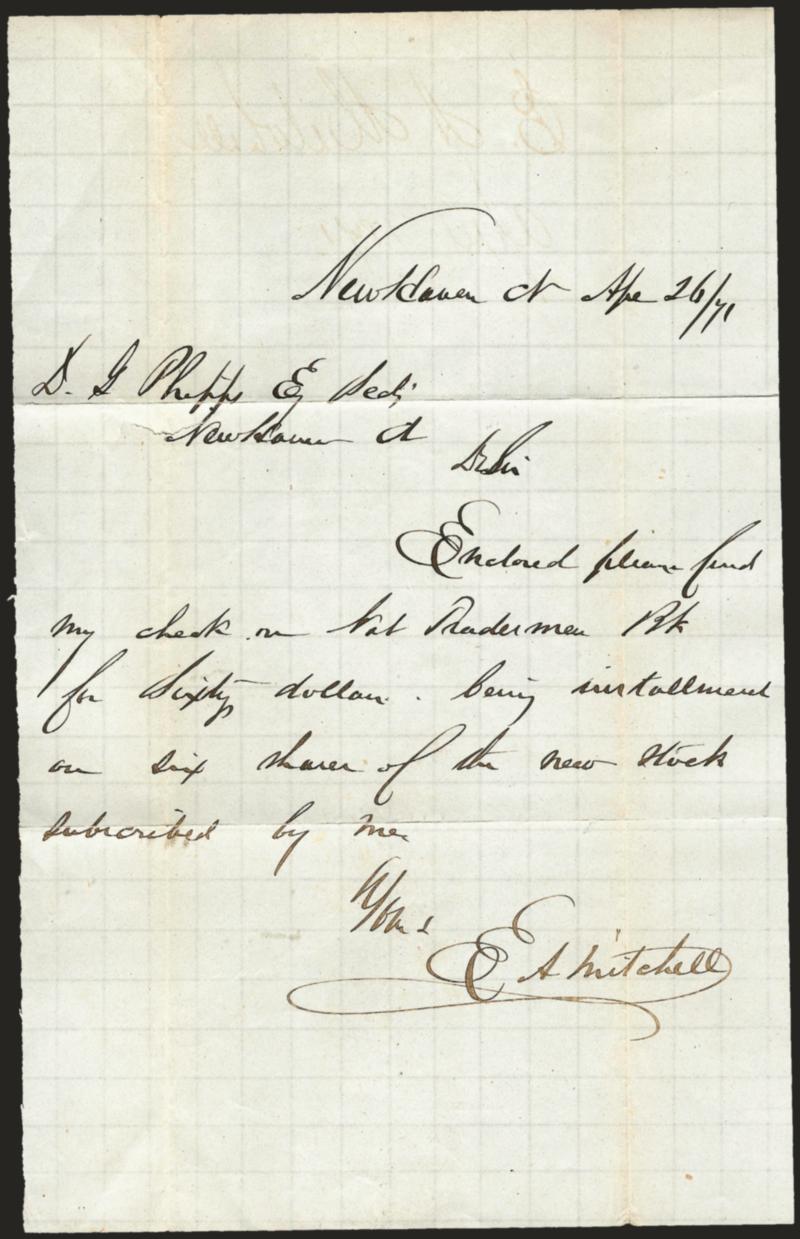 New Haven Ct Apr 26/71
D. G Phipps Esq Secy
New Haven Ct
Dr Sir
Enclosed please find
my check on Nat Tradesmen Bk
for Sixty dollars. being installment
on six shares of the new stock
subscribed by me
Yours
E A Mitchell